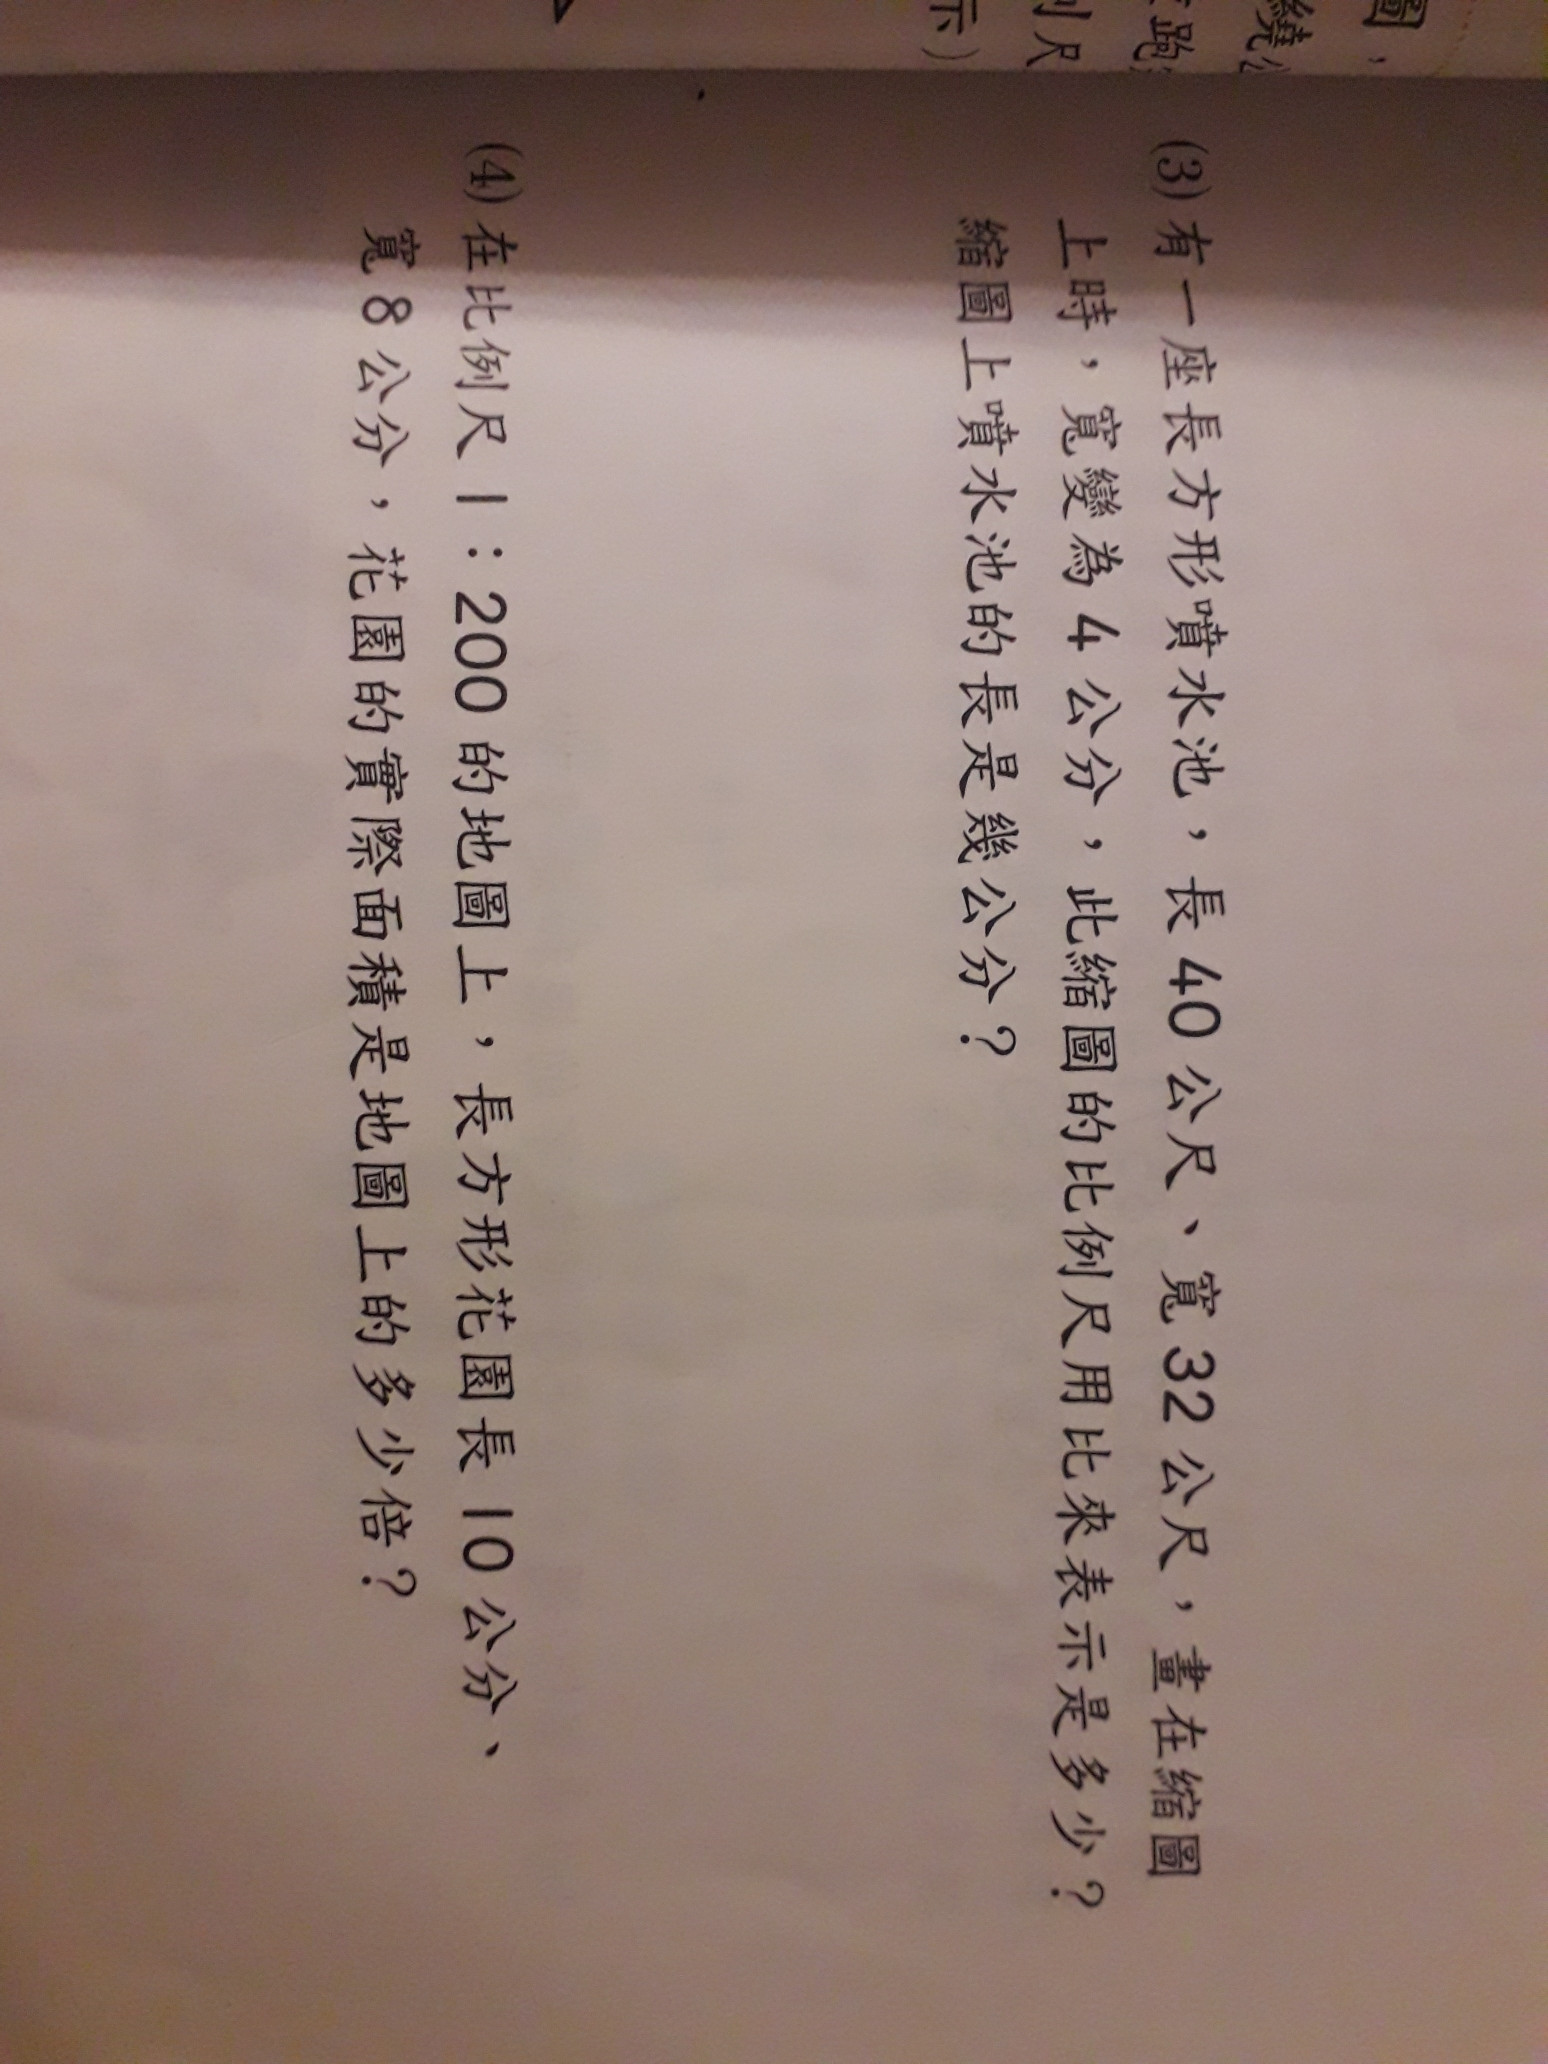 (3) 有一座長方形噴水池，長 40 公尺、寬 32 公尺，畫在縮圖
上時，寬變為 4 公分，此縮圖的比例尺用比來表示是多少？
縮圖上噴水池的長是幾公分？
(4) 在比例尺 1：200 的地圖上，長方形花園長 10 公分、
寬 8 公分，花園的實際面積是地圖上的多少倍？